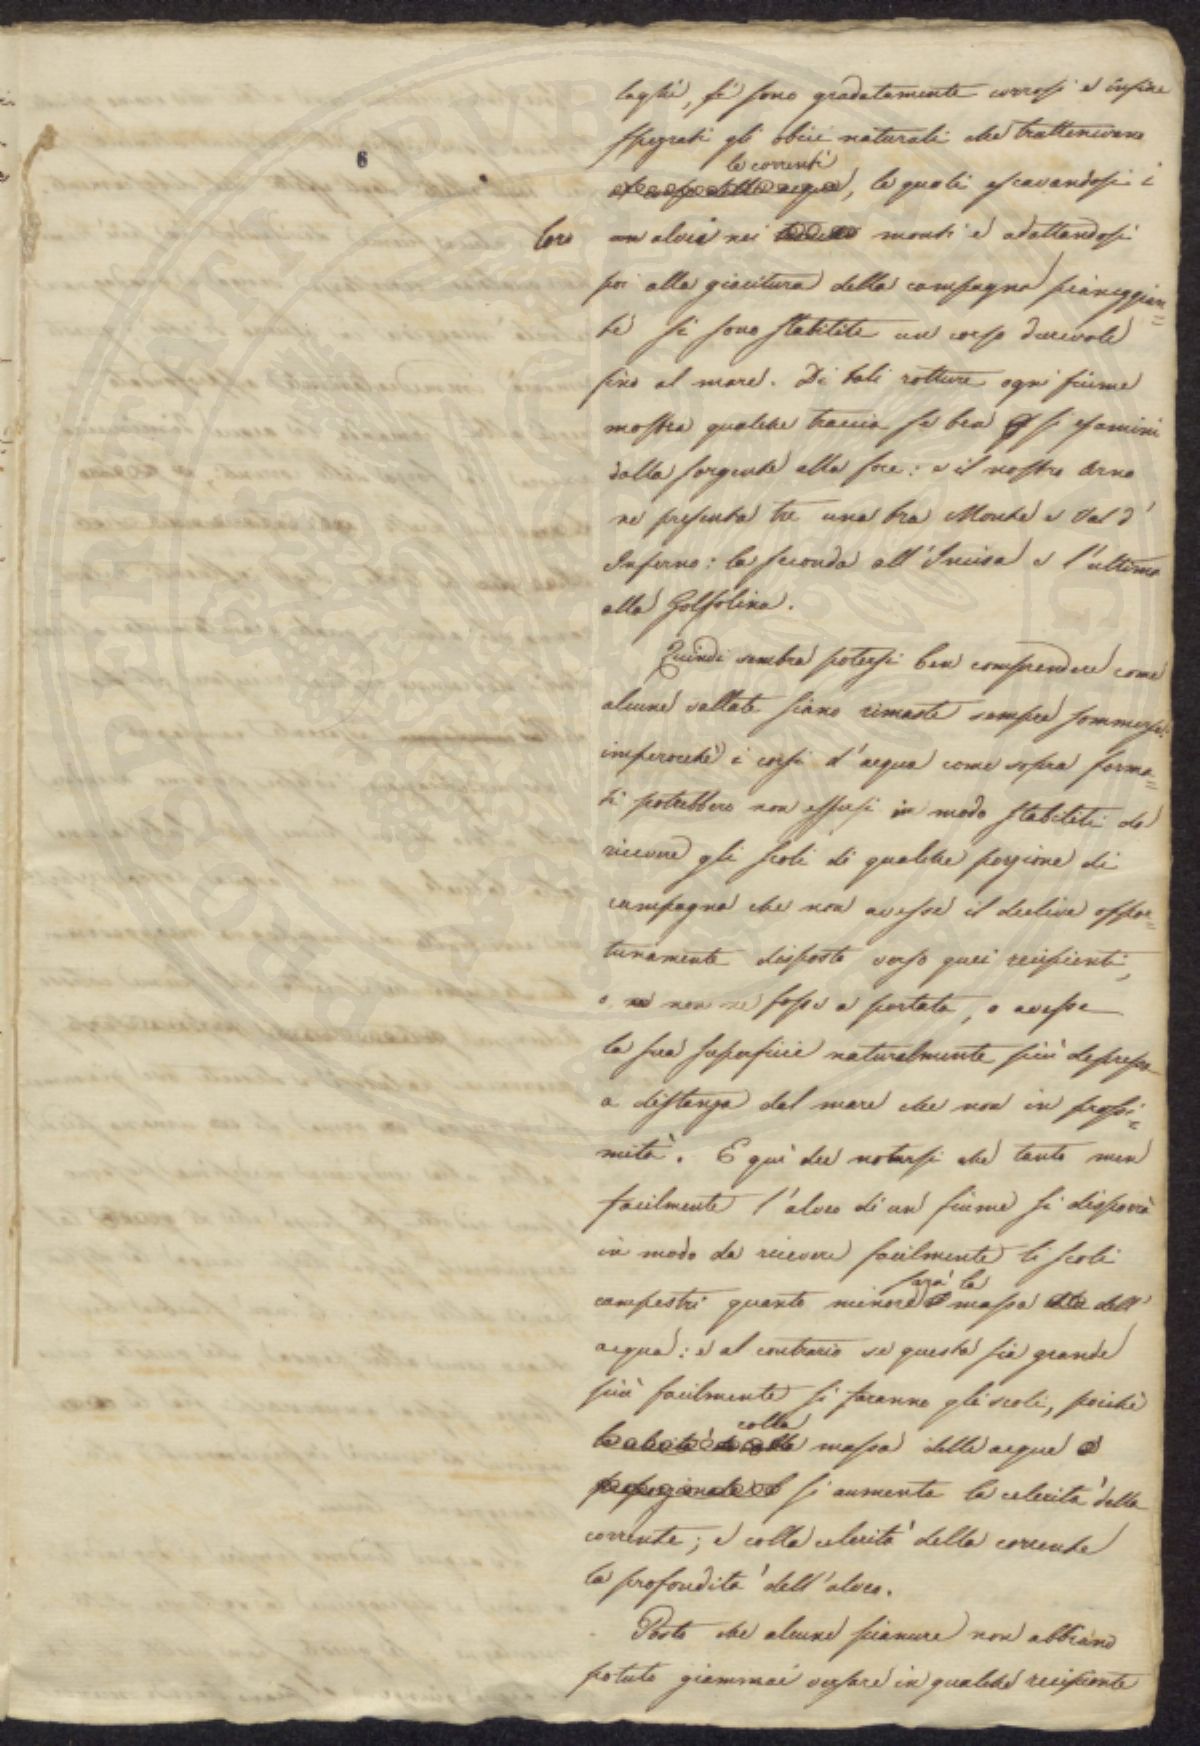 6
laghi, si sono gradatamente corrosi e infine
spezzati gli obici naturali che trattenevano
le correnti
, le quali escavandosi i
loro alvei nei monti e adattandosi
poi alla giacitura della campagna pianeggian=
te si sono stabilite un corso durevole
fino al mare. Di tali rotture ogni fiume
mostra qualche traccia se ben si esamini
dalla sorgente alla foce: e il nostro Arno
ne presenta tre una tra Monte e Val d'
Inferno: la seconda all'Incisa e l'ultima
alla Golfolina.
Quindi sembra potersi ben comprendere come
alcune vallate siano rimaste sempre sommerse:
imperocchè i corsi d'acqua come sopra forma=
ti potrebbero non essersi in modo stabiliti da
ricevere gli scoli di qualche porzione di
campagna che non avesse il declive oppor=
tunamente disposto verso quei recipienti,
o non ne fosse a portata, o avesse
la sua superficie naturalmente più depressa
a distanza dal mare che non in prossi=
mità. E qui dee notarsi che tanto men
facilmente l'alveo di un fiume si disporrà
in modo da ricevere facilmente li scoli
sarà la
campestri quanto minore massa dell'
acqua: e al contrario se questa sia grande
più facilmente si faranno gli scoli, poichè
colla
massa delle acque
si aumenta la celerità della
corrente; e colla celerità della corrente
la profondità dell'alveo.
Posto che alcune pianure non abbiano
potuto giammai versare in qualche recipiente